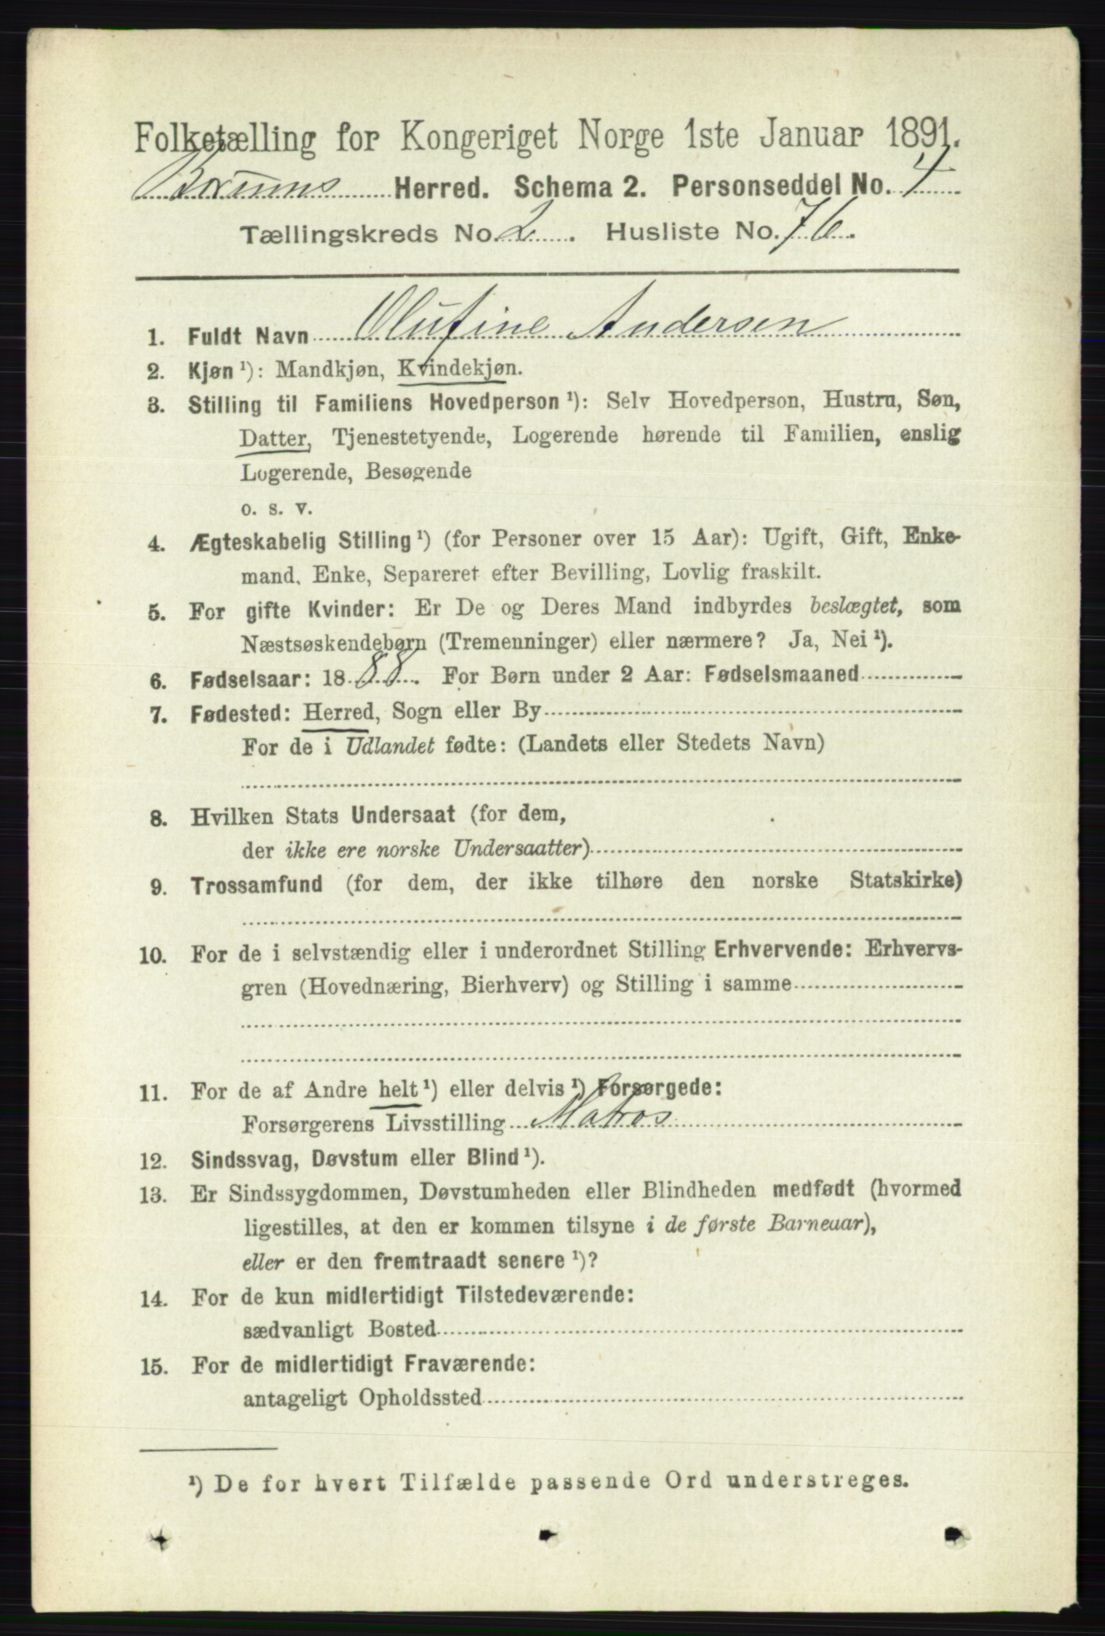 Folketælling for Kongeriget Norge 1ste Januar 1891.
Bærums Herred. Schema 2. Personseddel No. 4
Tællingskreds No. 2. Husliste No. 76.
1. Fuldt Navn Olufine Andersen
2. Kjøn ¹): Mandkjøn, Kvindekjøn.
3. Stilling til Familiens Hovedperson ¹): Selv Hovedperson, Hustru, Søn,
Datter, Tjenestetyende, Logerende hørende til Familien, enslig
Logerende, Besøgende
o. s. v.
4. Ægteskabelig Stilling ¹) (for Personer over 15 Aar): Ugift, Gift, Enke-
mand, Enke, Separeret efter Bevilling, Lovlig fraskilt.
5. For gifte Kvinder: Er De og Deres Mand indbyrdes beslægtet, som
Næstsøskendebørn (Tremenninger) eller nærmere? Ja, Nei ¹).
6. Fødselsaar: 1888. For Børn under 2 Aar: Fødselsmaaned
7. Fødested: Herred, Sogn eller By
For de i Udlandet fødte: (Landets eller Stedets Navn)
8. Hvilken Stats Undersaat (for dem,
der ikke ere norske Undersaatter)
9. Trossamfund (for dem, der ikke tilhøre den norske Statskirke)
10. For de i selvstændig eller i underordnet Stilling Erhvervende: Erhvervs-
gren (Hovednæring, Bierhverv) og Stilling i samme
11. For de af Andre helt ¹) eller delvis ¹) Forsørgede:
Forsørgerens Livsstilling Matros
12. Sindssvag, Døvstum eller Blind ¹).
13. Er Sindssygdommen, Døvstumheden eller Blindheden medfødt (hvormed
ligestilles, at den er kommen tilsyne i de første Barneaar),
eller er den fremtraadt senere ¹)?
14. For de kun midlertidigt Tilstedeværende:
sædvanligt Bosted
15. For de midlertidigt Fraværende:
antageligt Opholdssted
¹) De for hvert Tilfælde passende Ord understreges.